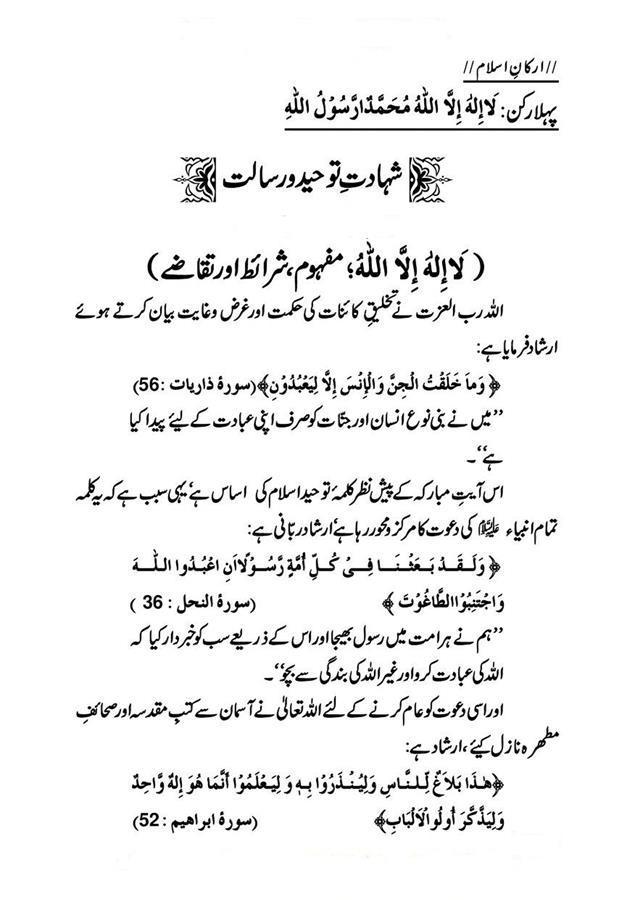 //ارکانِ اسلام//
پہلا رکن: لَا إِلٰهَ إِلَّا اللّٰهُ مُحَمَّدٌ ارَّسُوْلُ اللّٰهِ
شہادتِ توحید و رسالت
(لَا إِلٰهَ إِلَّا اللّٰهُ؛ مفہوم، شرائط اور تقاضے)
اللہ رب العزت نے تخلیقِ کائنات کی حکمت اور غرض وغایت بیان کرتے ہوئے
ارشاد فرمایا ہے:
﴿وَمَا خَلَقْتُ الْجِنَّ وَالْإِنْسَ إِلَّا لِيَعْبُدُوْنِ﴾(سورۂ ذاریات :56)
’’میں نے بنی نوع انسان اور جنّات کو صرف اپنی عبادت کے لیئے پیدا کیا
ہے‘‘۔
اس آیتِ مبارکہ کے پیش نظر کلمۂ توحید اسلام کی اساس ہے‘ یہی سبب ہے کہ یہ کلمہ
تمام انبیاء علیہم السلام کی دعوت کا مرکز و محور رہا ہے‘ ارشاد ربّانی ہے:
﴿وَلَقَدْ بَعَثْنَا فِيْ كُلِّ أُمَّةٍ رَّسُوْلًا اَنِ اعْبُدُوا اللّٰهَ
وَاجْتَنِبُوْا الطَّاغُوْتَ﴾ (سورۃ النحل : 36 )
’’ہم نے ہر امت میں رسول بھیجا اور اس کے ذریعے سب کو خبردار کیا کہ
اللہ کی عبادت کرو اور غیر اللہ کی بندگی سے بچو‘‘۔
اور اسی دعوت کو عام کرنے کے لئے اللہ تعالیٰ نے آسمان سے کتبِ مقدسہ اور صحائفِ
مطھرہ نازل کیئے ، ارشاد ہے:
﴿هٰذَا بَلَاغٌ لِّلنَّاسِ وَلِيُنْذَرُوْا بِهٖ وَ لِيَعْلَمُوْا أَنَّمَا هُوَ إِلٰهٌ وَّاحِدٌ
وَلِيَذَّكَّرَ أُولُوا الْأَلْبَابِ﴾ (سورۂ ابراھیم :52)